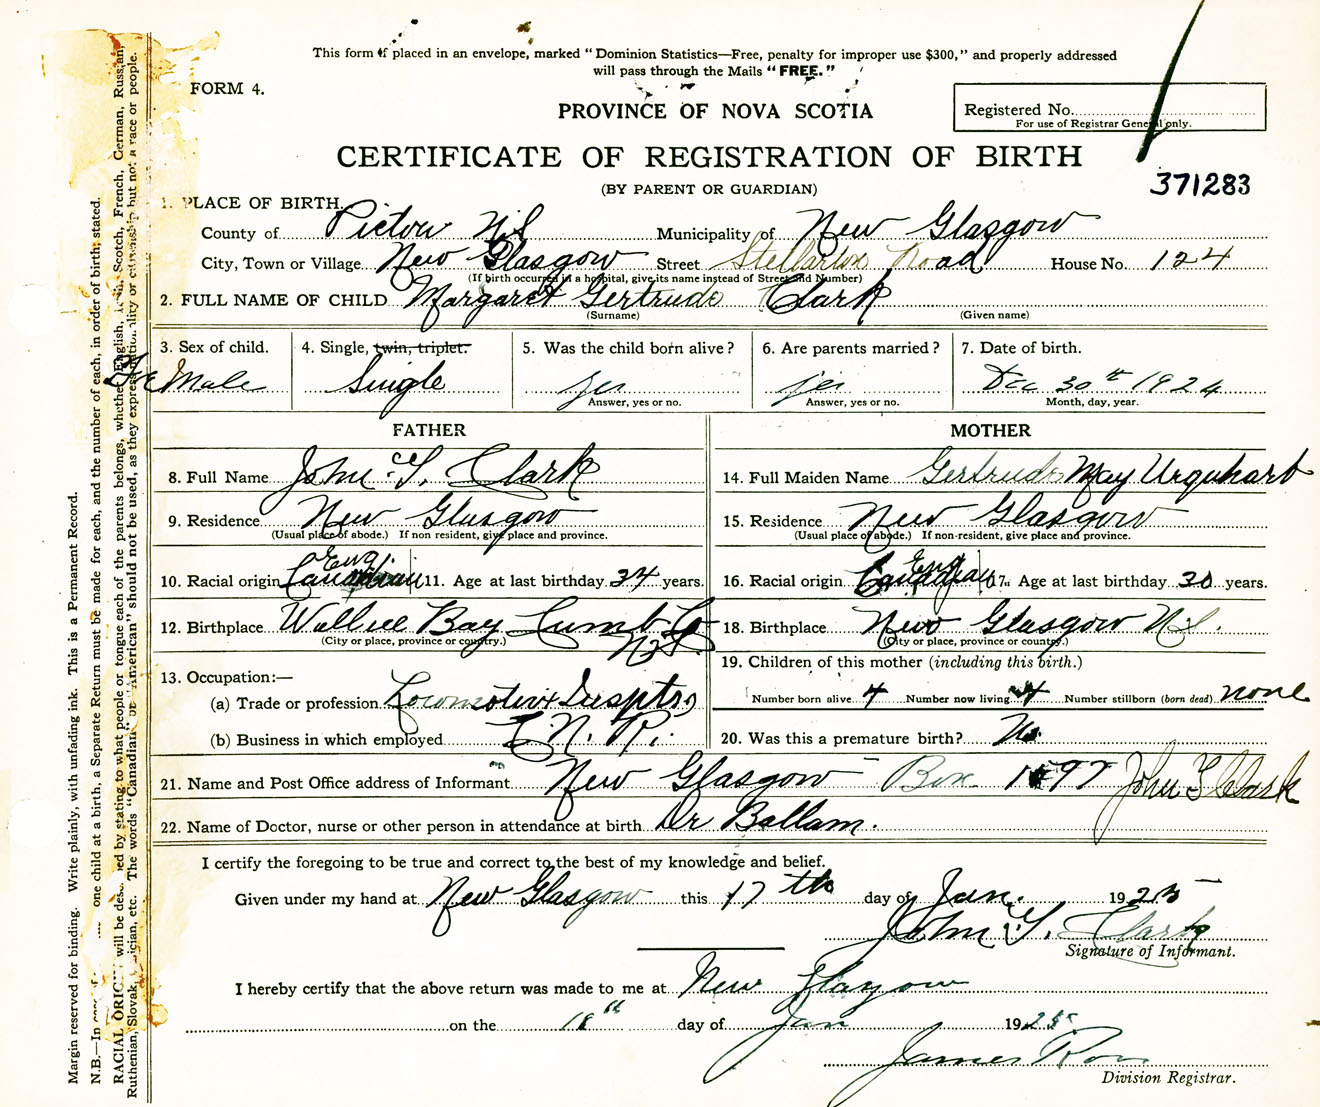 This form if placed in an envelope, marked "Dominion Statistics—Free, penalty for improper use $300," and properly addressed
will pass through the Mails "FREE."
FORM 4.
PROVINCE OF NOVA SCOTIA
Registered No.
For use of Registrar General only.
CERTIFICATE OF REGISTRATION OF BIRTH
(BY PARENT OR GUARDIAN)
371283
1. PLACE OF BIRTH.
County of Pictou N.S Municipality of New Glasgow
City, Town or Village New Glasgow Street Stellarton Road House No. 124
(If birth occurred in a hospital, give its name instead of Street and Number)
2. FULL NAME OF CHILD Margaret Gertrude Clark
(Surname) (Given name)
3. Sex of child. 4. Single, twin, triplet. 5. Was the child born alive? 6. Are parents married? 7. Date of birth.
FeMale Single yes yes Dec 30th 1924
Answer, yes or no. Answer, yes or no. Month, day, year.
FATHER MOTHER
8. Full Name John Clark 14. Full Maiden Name Gertrude May Urquhart
9. Residence New Glasgow 15. Residence New Glasgow
(Usual place of abode.) If non resident, give place and province. (Usual place of abode.) If non-resident, give place and province.
Eng. Eng
10. Racial origin Canadian 11. Age at last birthday 34 years. 16. Racial origin Canadian 17. Age at last birthday 30 years.
12. Birthplace Wallace Bay Cumb Co 18. Birthplace New Glasgow N.S.
(City or place, province or country.) N.S. (City or place, province or country.)
19. Children of this mother (including this birth.)
13. Occupation:—
(a) Trade or profession Locomotive Number born alive 4 Number now living 4 Number stillborn (born dead) none
(b) Business in which employed C.N.R. 20. Was this a premature birth? No
21. Name and Post Office address of Informant New Glasgow Box John Clark
22. Name of Doctor, nurse or other person in attendance at birth Dr Ballam.
I certify the foregoing to be true and correct to the best of my knowledge and belief.
Given under my hand at New Glasgow this 17th day of Jan. 1925
John Clark
Signature of Informant.
I hereby certify that the above return was made to me at New Glasgow
on the day of Jan 1925
James Ross
Division Registrar.
Margin reserved for binding. Write plainly, with unfading ink. This is a Permanent Record.
N.B.—In one child at a birth, a Separate Return must be made for each, and the number of each, in order of birth, stated.
RACIAL ORIGIN will be described by stating to what people or tongue each of the parents belongs, whether English, Irish, Scotch, French, German, Russian,
Ruthenian, Slovak, etc. The words "Canadian" or "American" should not be used, as they express nationality or citizenship but not a race or people.